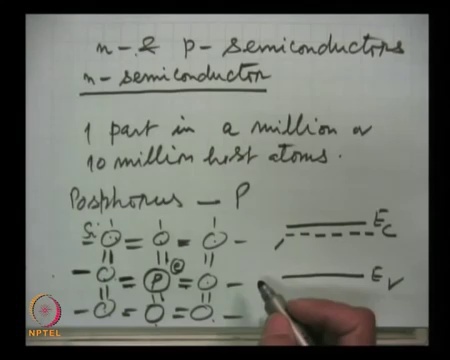 n- & p- semiconductors
n- semiconductor
1 part in a million or
10 million host atoms.
Posphorus — P
Si
P
e
Ec
Ev
NPTEL